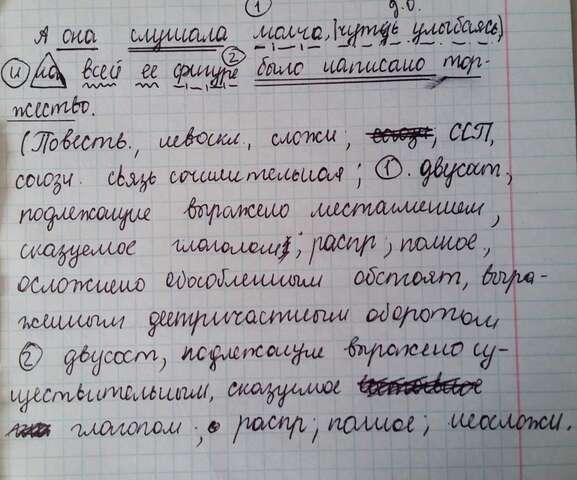 ① д.о.
А она слушала молча, |чуть улыбаясь,|
и на всей ее фигуре ② было написано тор-
жество.
(Повеств., невоскл., сложн; ССП,
союзн. связь сочинительная; ①. двусост,
подлежащие выражено местоимением,
сказуемое глаголом; распр; полное,
осложнено обособленным обстоят, выра-
женным деепричастным оборотом,
② двусост, подлежащие выражено су-
ществительным, сказуемое
глаголом; распр; полное; неосложн.